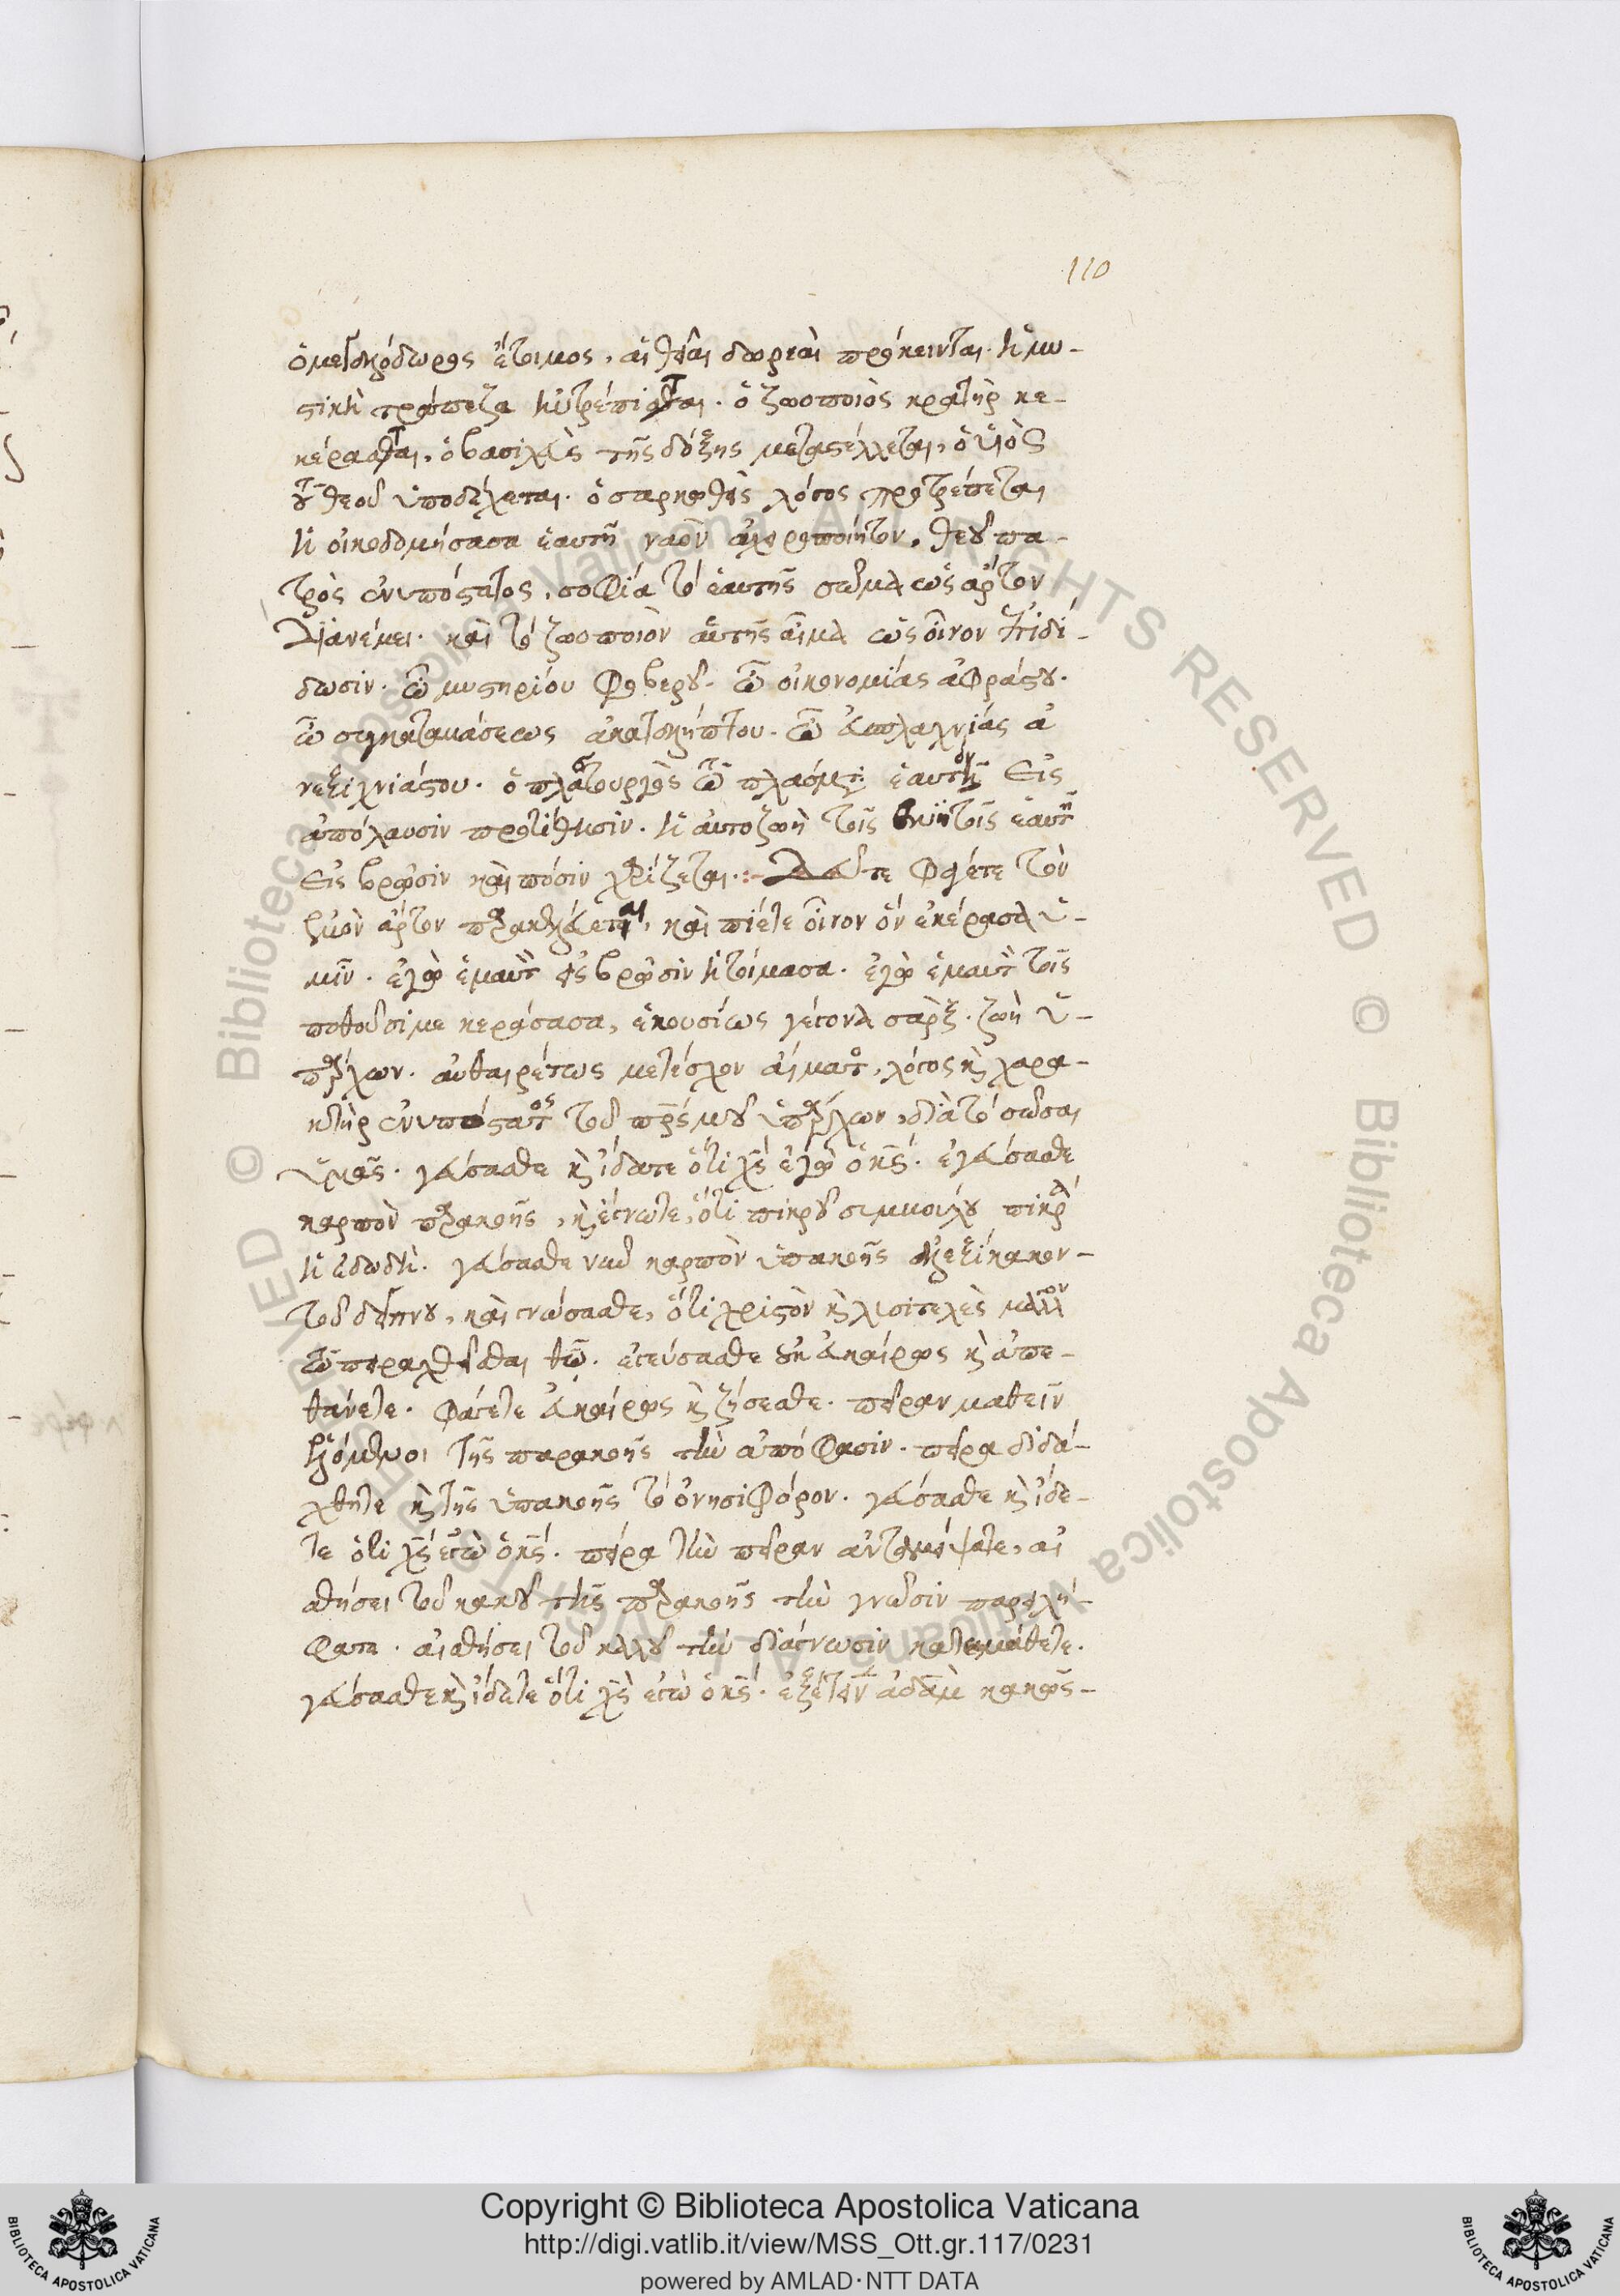 110
ὁ μεγαλόδωρος ἕτοιμος. αἱ θεῖαι δωρεαὶ πρόκεινται. ἡ μυ-
στικὴ τράπεζα ηὐτρέπισται. ὁ ζωοποιὸς κρατὴρ κε-
κέρασται. ὁ βασιλεὺς τῆς δόξης μεταστέλλεται. ὁ υἱὸς
τοῦ θεοῦ ὑποδέχεται. ὁ σαρκωθεὶς λόγος προτρέπεται
ἡ οἰκοδομήσασα ἑαυτῇ ναὸν ἀχειροποίητον. θεοῦ πα-
τρὸς ἐνυπόστατος σοφία τὸ ἑαυτῆς σῶμα ὡς ἄρτον
διανέμει. καὶ τὸ ζωοποιὸν αὐτῆς αἷμα ὡς οἶνον ἐπιδί-
δωσιν. ὢ μυστηρίου φοβεροῦ. ὢ οἰκονομίας ἀφράστου.
ὢ συγκαταβάσεως ἀκαταλήπτου. ὢ εὐσπλαχνίας ἀ
νεξιχνιάστου. ὁ πλαστουργὸς τῷ πλάσματι ἑαυτὸν εἰς
ἀπόλαυσιν προτίθησιν. ἡ αὐτοζωὴ τοῖς θνητοῖς ἑαυτὴν
εἰς βρῶσιν καὶ πόσιν χαρίζεται. Δεῦτε φάγετε τὸν
ἐμὸν ἄρτον παρακελεύεται, καὶ πίετε οἶνον ὃν ἐκέρασα ὑ-
μῖν. ἐγὼ ἐμαυτὴν εἰς βρῶσιν ἡτοίμασα. ἐγὼ ἐμαυτὴν τοῖς
ποθοῦσί με κεράσασα, ἑκουσίως γέγονα σὰρξ. ζωὴ ὑ-
πάρχων. αὐθαιρέτως μετέσχον αἵματος, λόγος καὶ χαρα-
κτὴρ ἐνυπόστατος τοῦ πρς μου ὑπάρχων, διὰ τὸ σῶσαι
ὑμᾶς. γεύσασθε καὶ ἴδατε ὅτι χς ἐγὼ ὁ κς. ἐγεύσασθε
καρπὸν παρακοῆς, καὶ ἔγνωτε, ὅτι πικροῦ συμβούλου πικρὰ
ἡ ἐδωδή. γεύσασθε νῦν καρπὸν ὑπακοῆς ἀλεξίκακον
τοῦ δεῖπνου, καὶ γνώσασθε, ὅτι χριστὸν καὶ λυσιτελὲς μᾶλλον
τῷ πειραχθεῖσθαι θῶ. ἐγεύσασθε οὐκ εὐκαίρως καὶ ἀπε-
θάνετε. φάγετε εὐκαίρως καὶ ζήσεσθε. πεῖραν μαθεῖν
ἑλόμενοι τῆς παρακοῆς τὴν ἀπόφασιν. πεῖρα διδά-
χθητε καὶ τῆς ὑπακοῆς τὸ ὀνησιφόρον. γεύσασθε καὶ ἴδε-
τε ὅτι χς ἐγὼ ὁ κς. πεῖρα τὴν πεῖραν ἀνταμείψατε, αἰ
σθήσει τοῦ κακοῦ τῆς παρακοῆς τὴν γνῶσιν παρειλή-
φατε. αἰσθήσει τοῦ καλοῦ τὴν διάγνωσιν καταμάθετε.
γεύσασθε καὶ ἴδετε ὅτι χς ἐγὼ ὁ κς. ἐξέτεινεν ἀδὰμ κακῶς
Copyright © Biblioteca Apostolica Vaticana
http://digi.vatlib.it/view/MSS_Ott.gr.117/0231
powered by AMLAD·NTT DATA